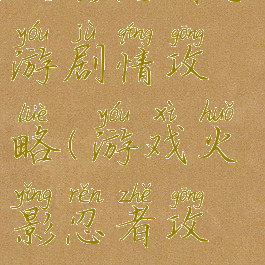 yóu jù qíng gōng
游剧情攻
lüè yóu xì huǒ
略(游戏火
yǐng rěn zhě gōng
影忍者攻